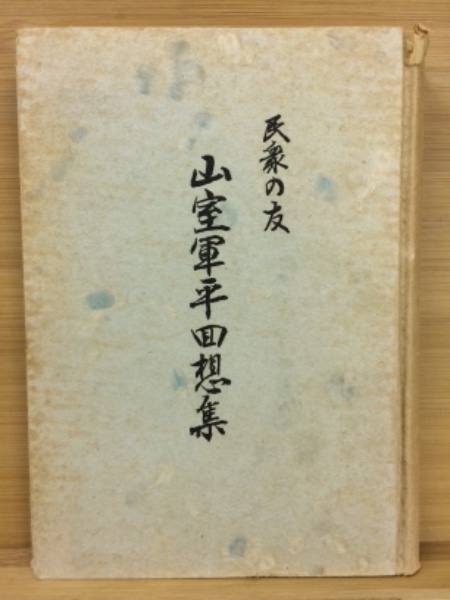 民衆の友
山室軍平回想集